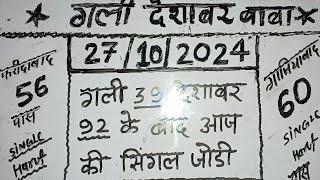 गली देशावर बाबा
27/10/2024
फरीदाबाद
56
पास
SINGLE
Haruf
गली 39 देशावर
92 के बाद आज
की सिंगल जोडी
गाजियाबाद
60
SINGLE
Haruf
पास